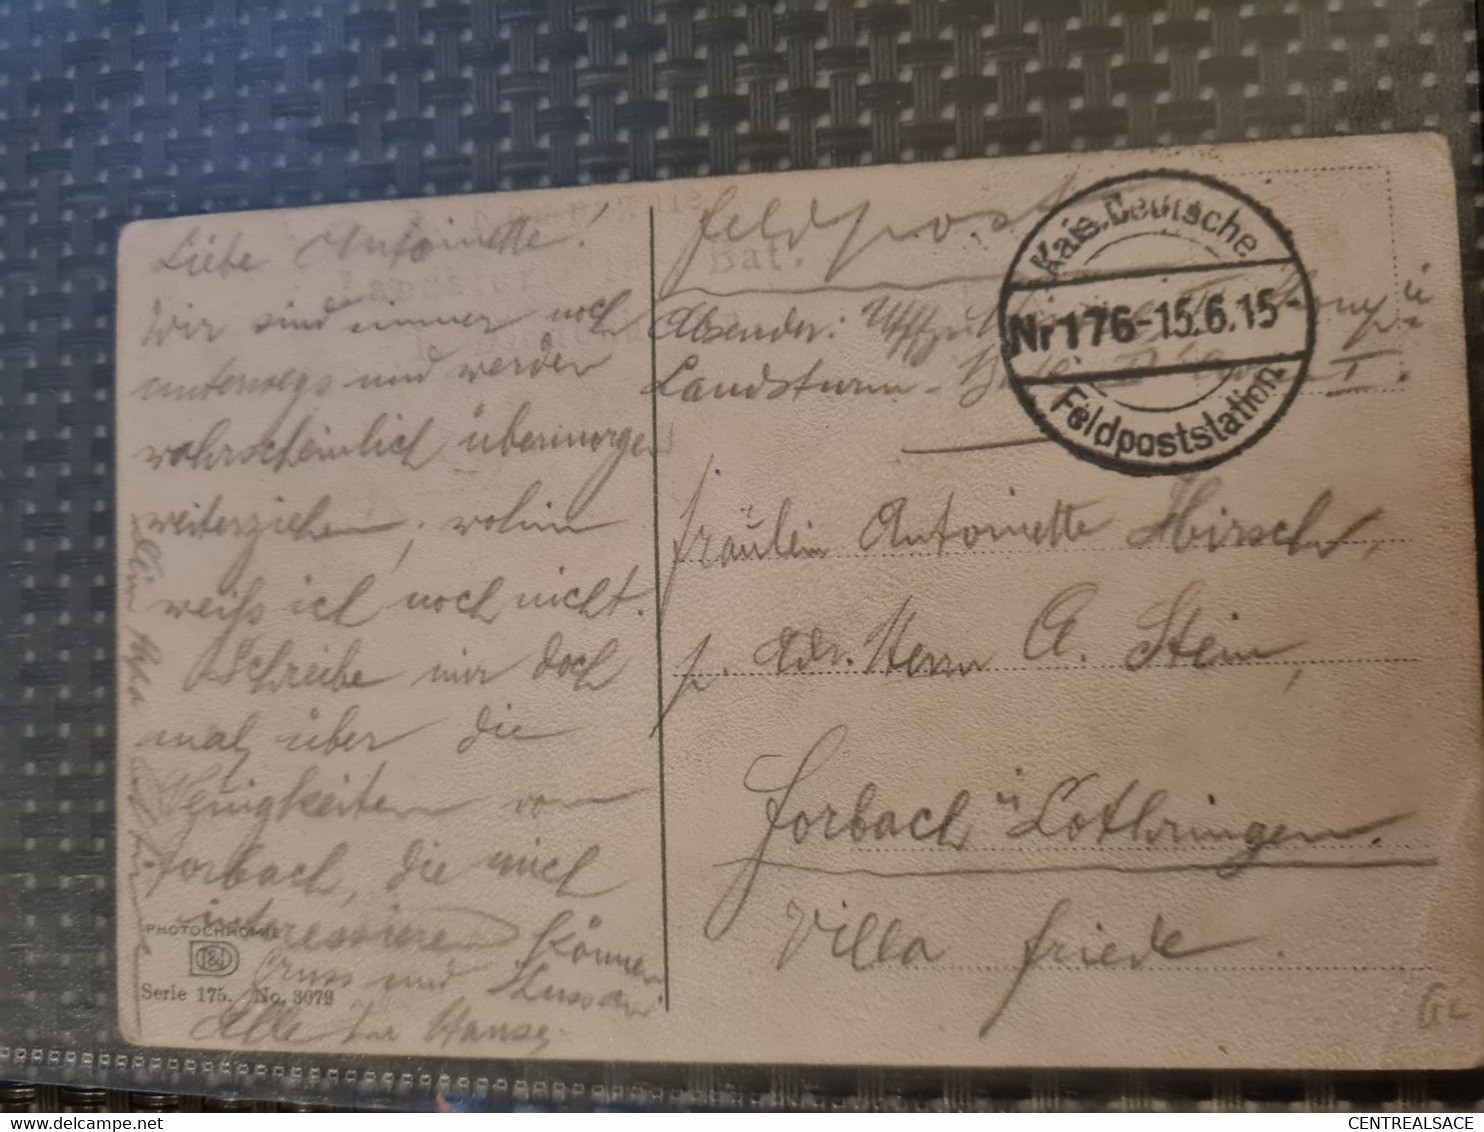 Liebe Antoinette!
Wir sind immer noch
unterwegs und werden
wahrscheinlich übermorgen
weiterziehen, wohin
weiß ich noch nicht.
Schreibe mir doch
mal über die
Neuigkeiten von
Forbach, die mich
interessieren können
Gruss und Kuss an
Alle
PHOTOCHROMIE
Serie 175. No. 3079
Feldpost
Bat.
Absender: Uffz.
Landsturm-
Kais. Deutsche
Nr 176-15.6.15-
Feldpoststation
Fräulein Antoinette Hirsch,
p. Adr. Herrn A. Stein,
Forbach i/ Lothringen.
Villa Friede
CENTREALSACE